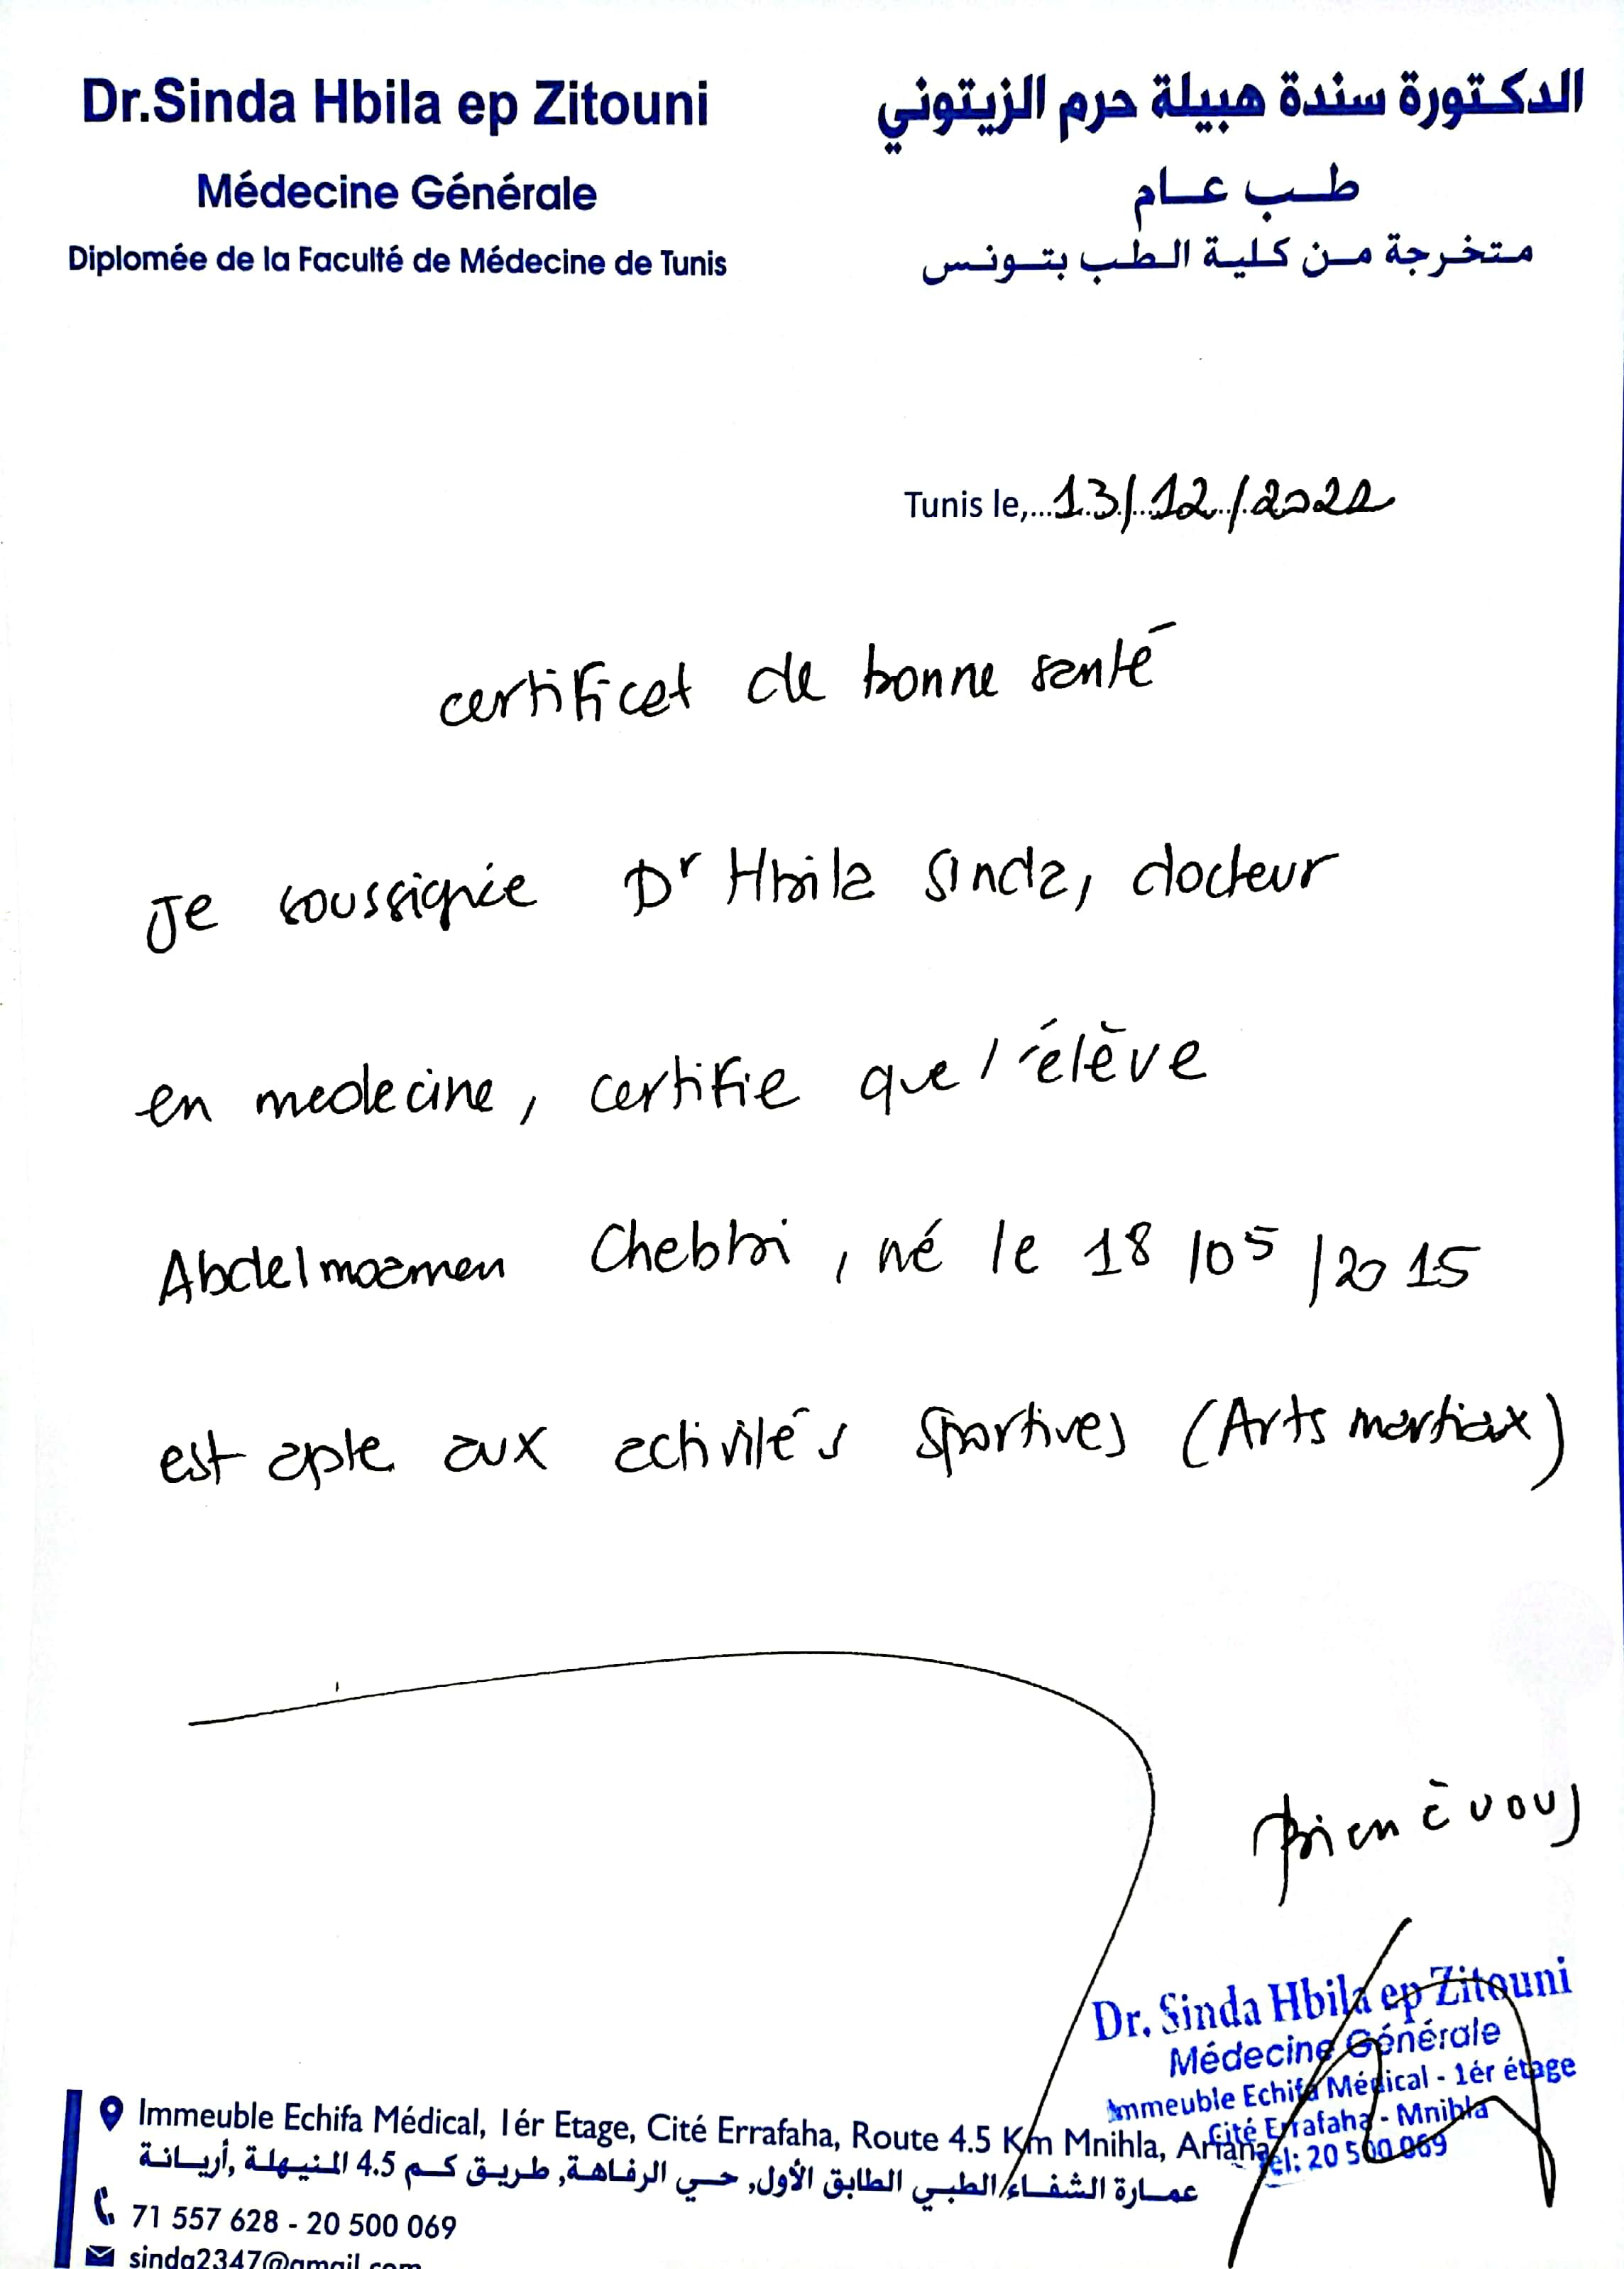 Dr.Sinda Hbila ep Zitouni
Médecine Générale
Diplomée de la Faculté de Médecine de Tunis
الدكتورة سندة هبيلة حرم الزيتوني
طب عام
متخرجة من كلية الطب بتونس
Tunis le,...13/12/2022
certificat de bonne santé
Je soussignée Dr Hbila Sinda, docteur
en medecine, certifie que l'élève
Abdelmoamen Chebbi, né le 18/05/2015
est apte aux activités sportives (Arts martiax)
bien à vous
Dr. Sinda Hbila ep Zitouni
Médecine Générale
Immeuble Echifa Médical - 1ér étage
Cité Errafaha - Mnihla
Tél: 20 500 069
Immeuble Echifa Médical, 1ér Etage, Cité Errafaha, Route 4.5 Km Mnihla, Ariana
عمارة الشفاء الطبي الطابق الأول, حي الرفاهة, طريق كم 4.5 المنيهلة ,أريانة
71 557 628 - 20 500 069
sinda2347@gmail.com